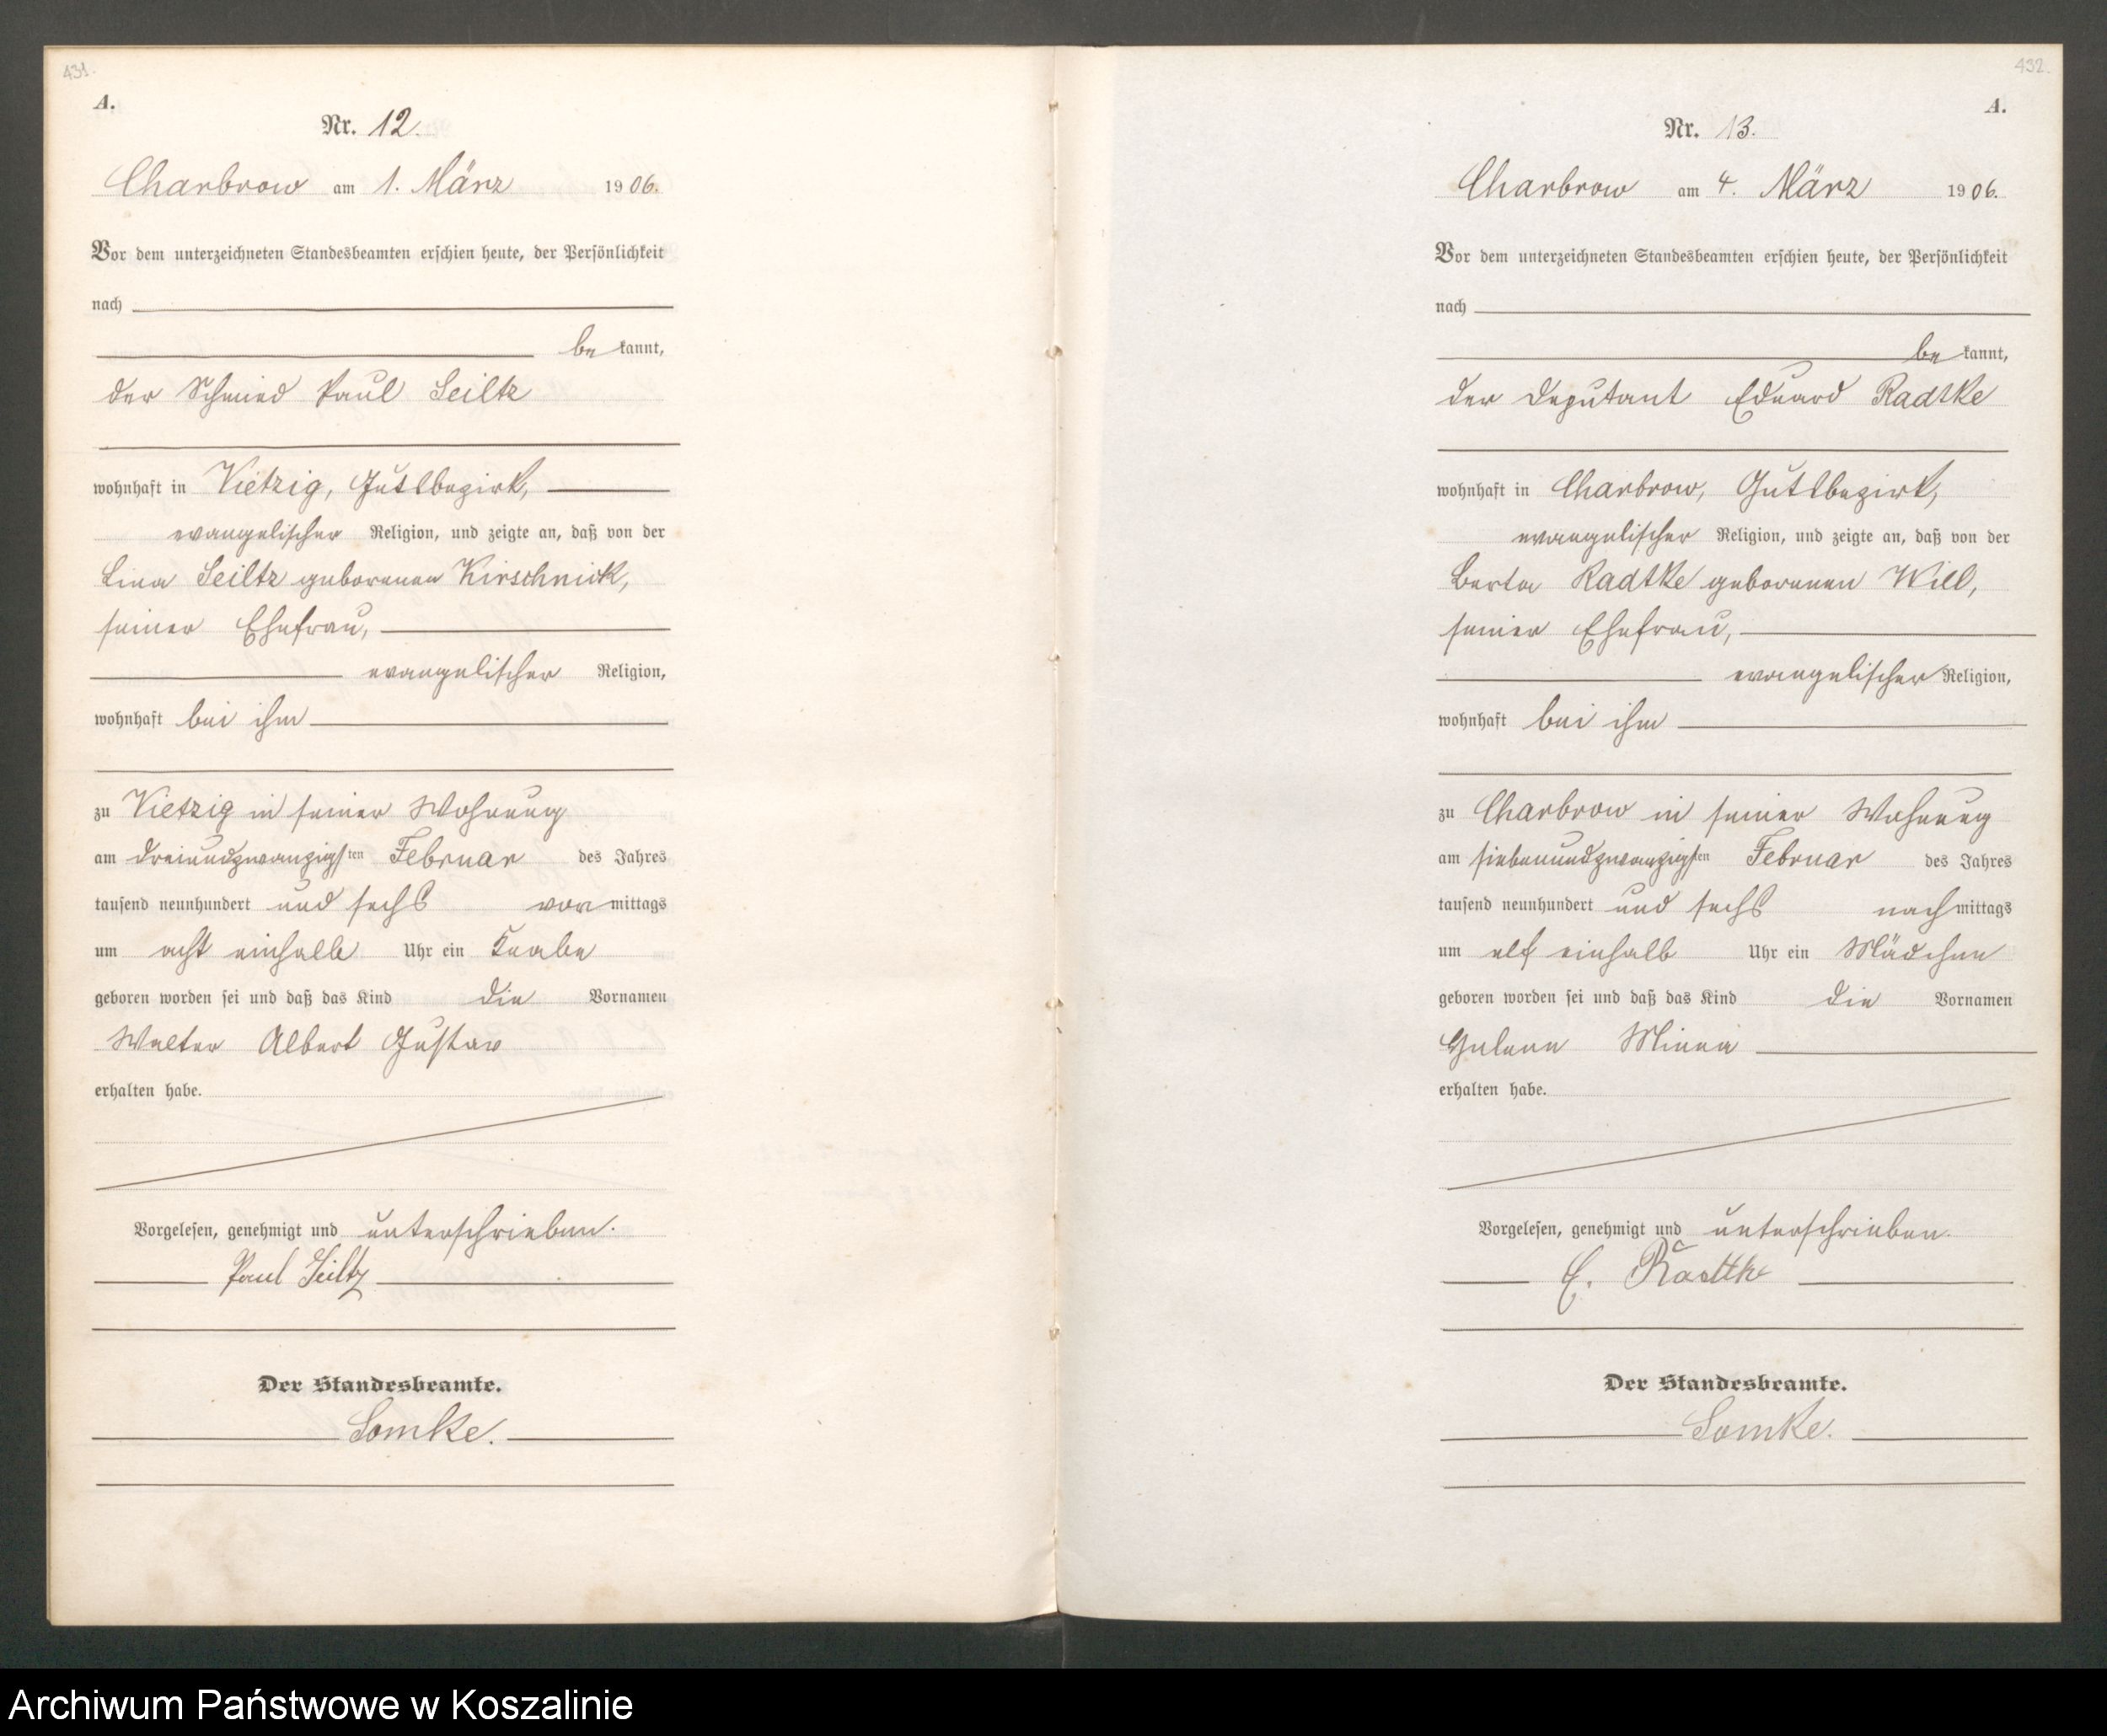 431.
A.
Nr. 12.
Charbrow am 1. März 1906.
Vor dem unterzeichneten Standesbeamten erschien heute, der Persönlichkeit
nach
be kannt,
der Schmied Paul Seiltz
wohnhaft in Vietzig, Gutsbezirk,
evangelischer Religion, und zeigte an, daß von der
Lina Seiltz geborenen Kirschnick,
seiner Ehefrau,
evangelischer Religion,
wohnhaft bei ihm
zu Vietzig in seiner Wohnung
am dreiundzwanzigsten Februar des Jahres
tausend neunhundert und sechs vor mittags
um acht einhalb Uhr ein Knabe
geboren worden sei und daß das Kind die Vornamen
Walter Albert Gustav
erhalten habe.
Vorgelesen, genehmigt und unterschrieben.
Paul Seiltz
Der Standesbeamte.
Lomke.
432.
A.
Nr. 13.
Charbrow am 4. März 1906.
Vor dem unterzeichneten Standesbeamten erschien heute, der Persönlichkeit
nach
be kannt,
der Deputant Eduard Radtke
wohnhaft in Charbrow, Gutsbezirk,
evangelischer Religion, und zeigte an, daß von der
Berta Radtke geborenen Will,
seiner Ehefrau,
evangelischer Religion,
wohnhaft bei ihm
zu Charbrow in seiner Wohnung
am siebenundzwanzigsten Februar des Jahres
tausend neunhundert und sechs nach mittags
um elf einhalb Uhr ein Mädchen
geboren worden sei und daß das Kind die Vornamen
Helene Minna
erhalten habe.
Vorgelesen, genehmigt und unterschrieben.
E. Radtke
Der Standesbeamte.
Lomke.
Archiwum Państwowe w Koszalinie